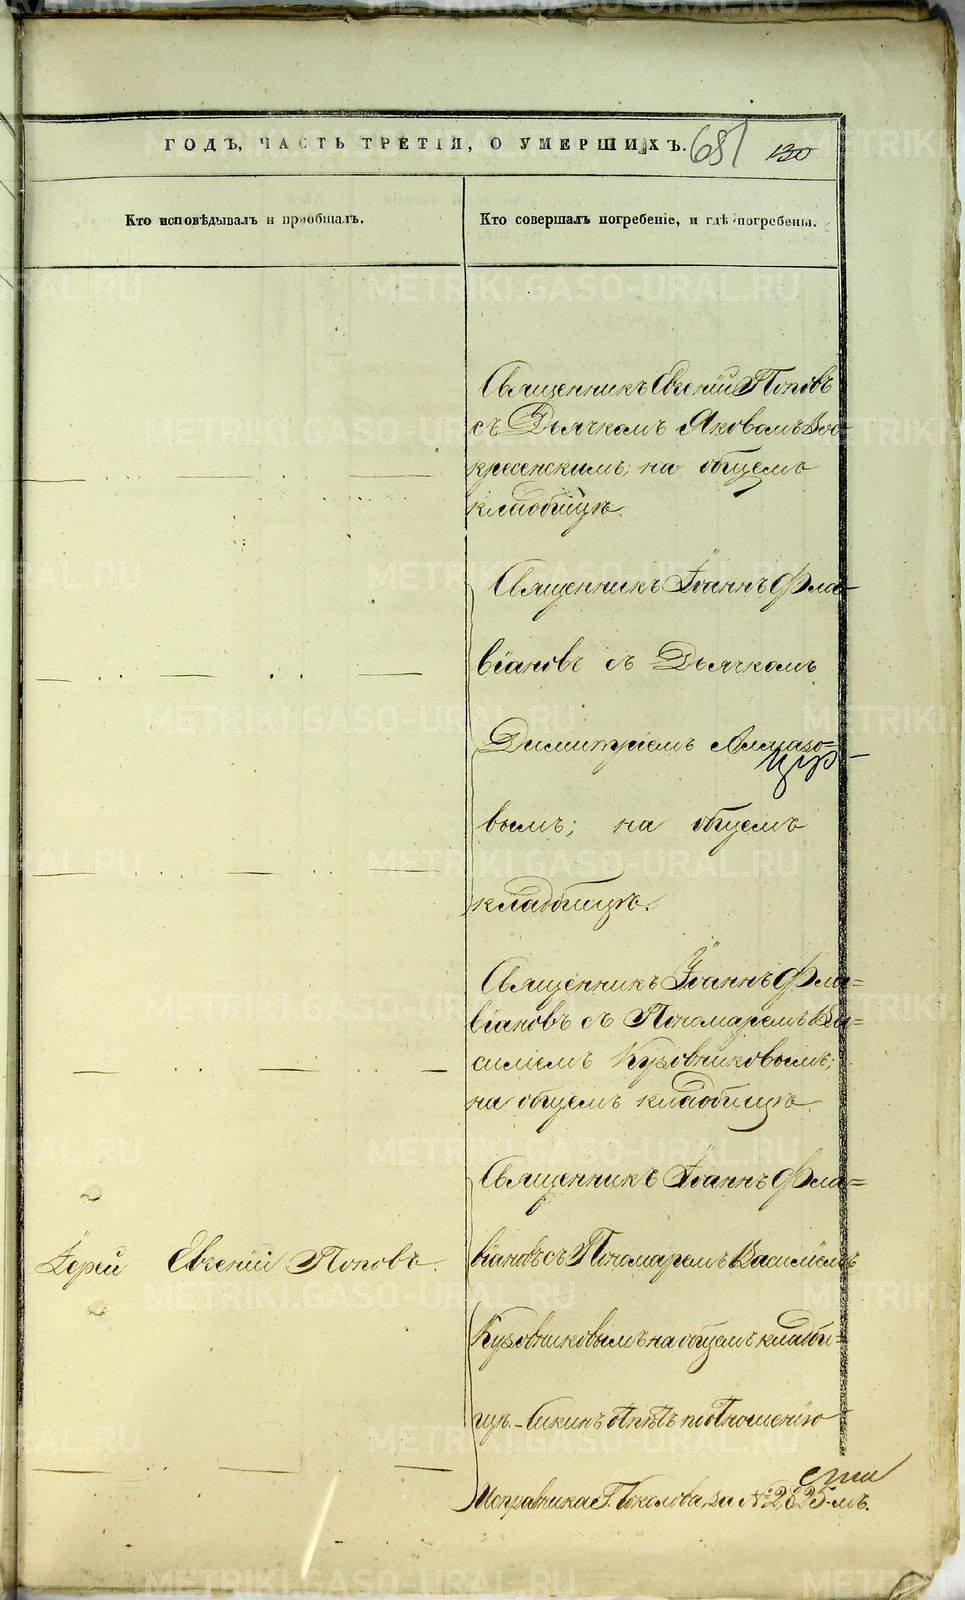 ГОДЪ, ЧАСТЬ ТРЕТІЯ, О УМЕРШИХЪ.
681 130
Кто исповѣдывалъ и пріобщалъ.
Кто совершалъ погребеніе, и гдѣ погребены.
Священникъ Евгеній Поповъ
съ Дьячкомъ Яковомъ Вос-
кресенскимъ; на общемъ
кладбищѣ.
Священникъ Іоаннъ Фла-
віановъ съ Дьячкомъ
Димитріемъ Алмазо-
вымъ; на общемъ
кладбищѣ.
Священникъ Іоаннъ Фла=
віановъ съ Пономаремъ Ва=
силіемъ Кузовниковымъ;
на общемъ кладбищѣ.
Священникъ Іоаннъ Фла=
Іерей Евгеній Поповъ.
віановъ съ Пономаремъ Василіемъ
Кузовниковымъ на общемъ кладби=
щѣ. отпѣтъ по отношенію
Исправника Г. Соколова, за № 2,825-мъ.
METRIKI.GASO-URAL.RU